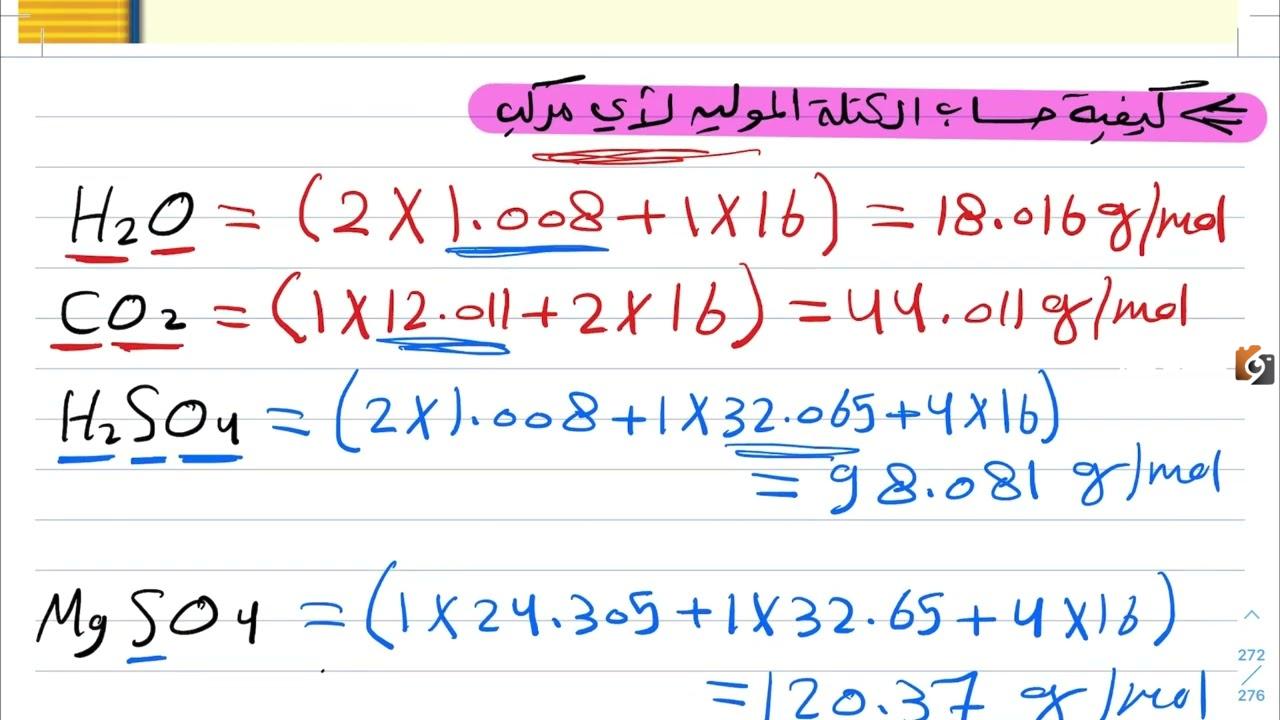 كيفية حساب الكتلة المولية لأي مركب
H2O = (2 X 1.008 + 1 X 16) = 18.016 g/mol
CO2 = (1 X 12.011 + 2 X 16) = 44.011 g/mol
H2SO4 = (2 X 1.008 + 1 X 32.065 + 4 X 16)
= 98.081 g/mol
MgSO4 = (1 X 24.305 + 1 X 32.65 + 4 X 16)
= 120.37 g/mol
272
276